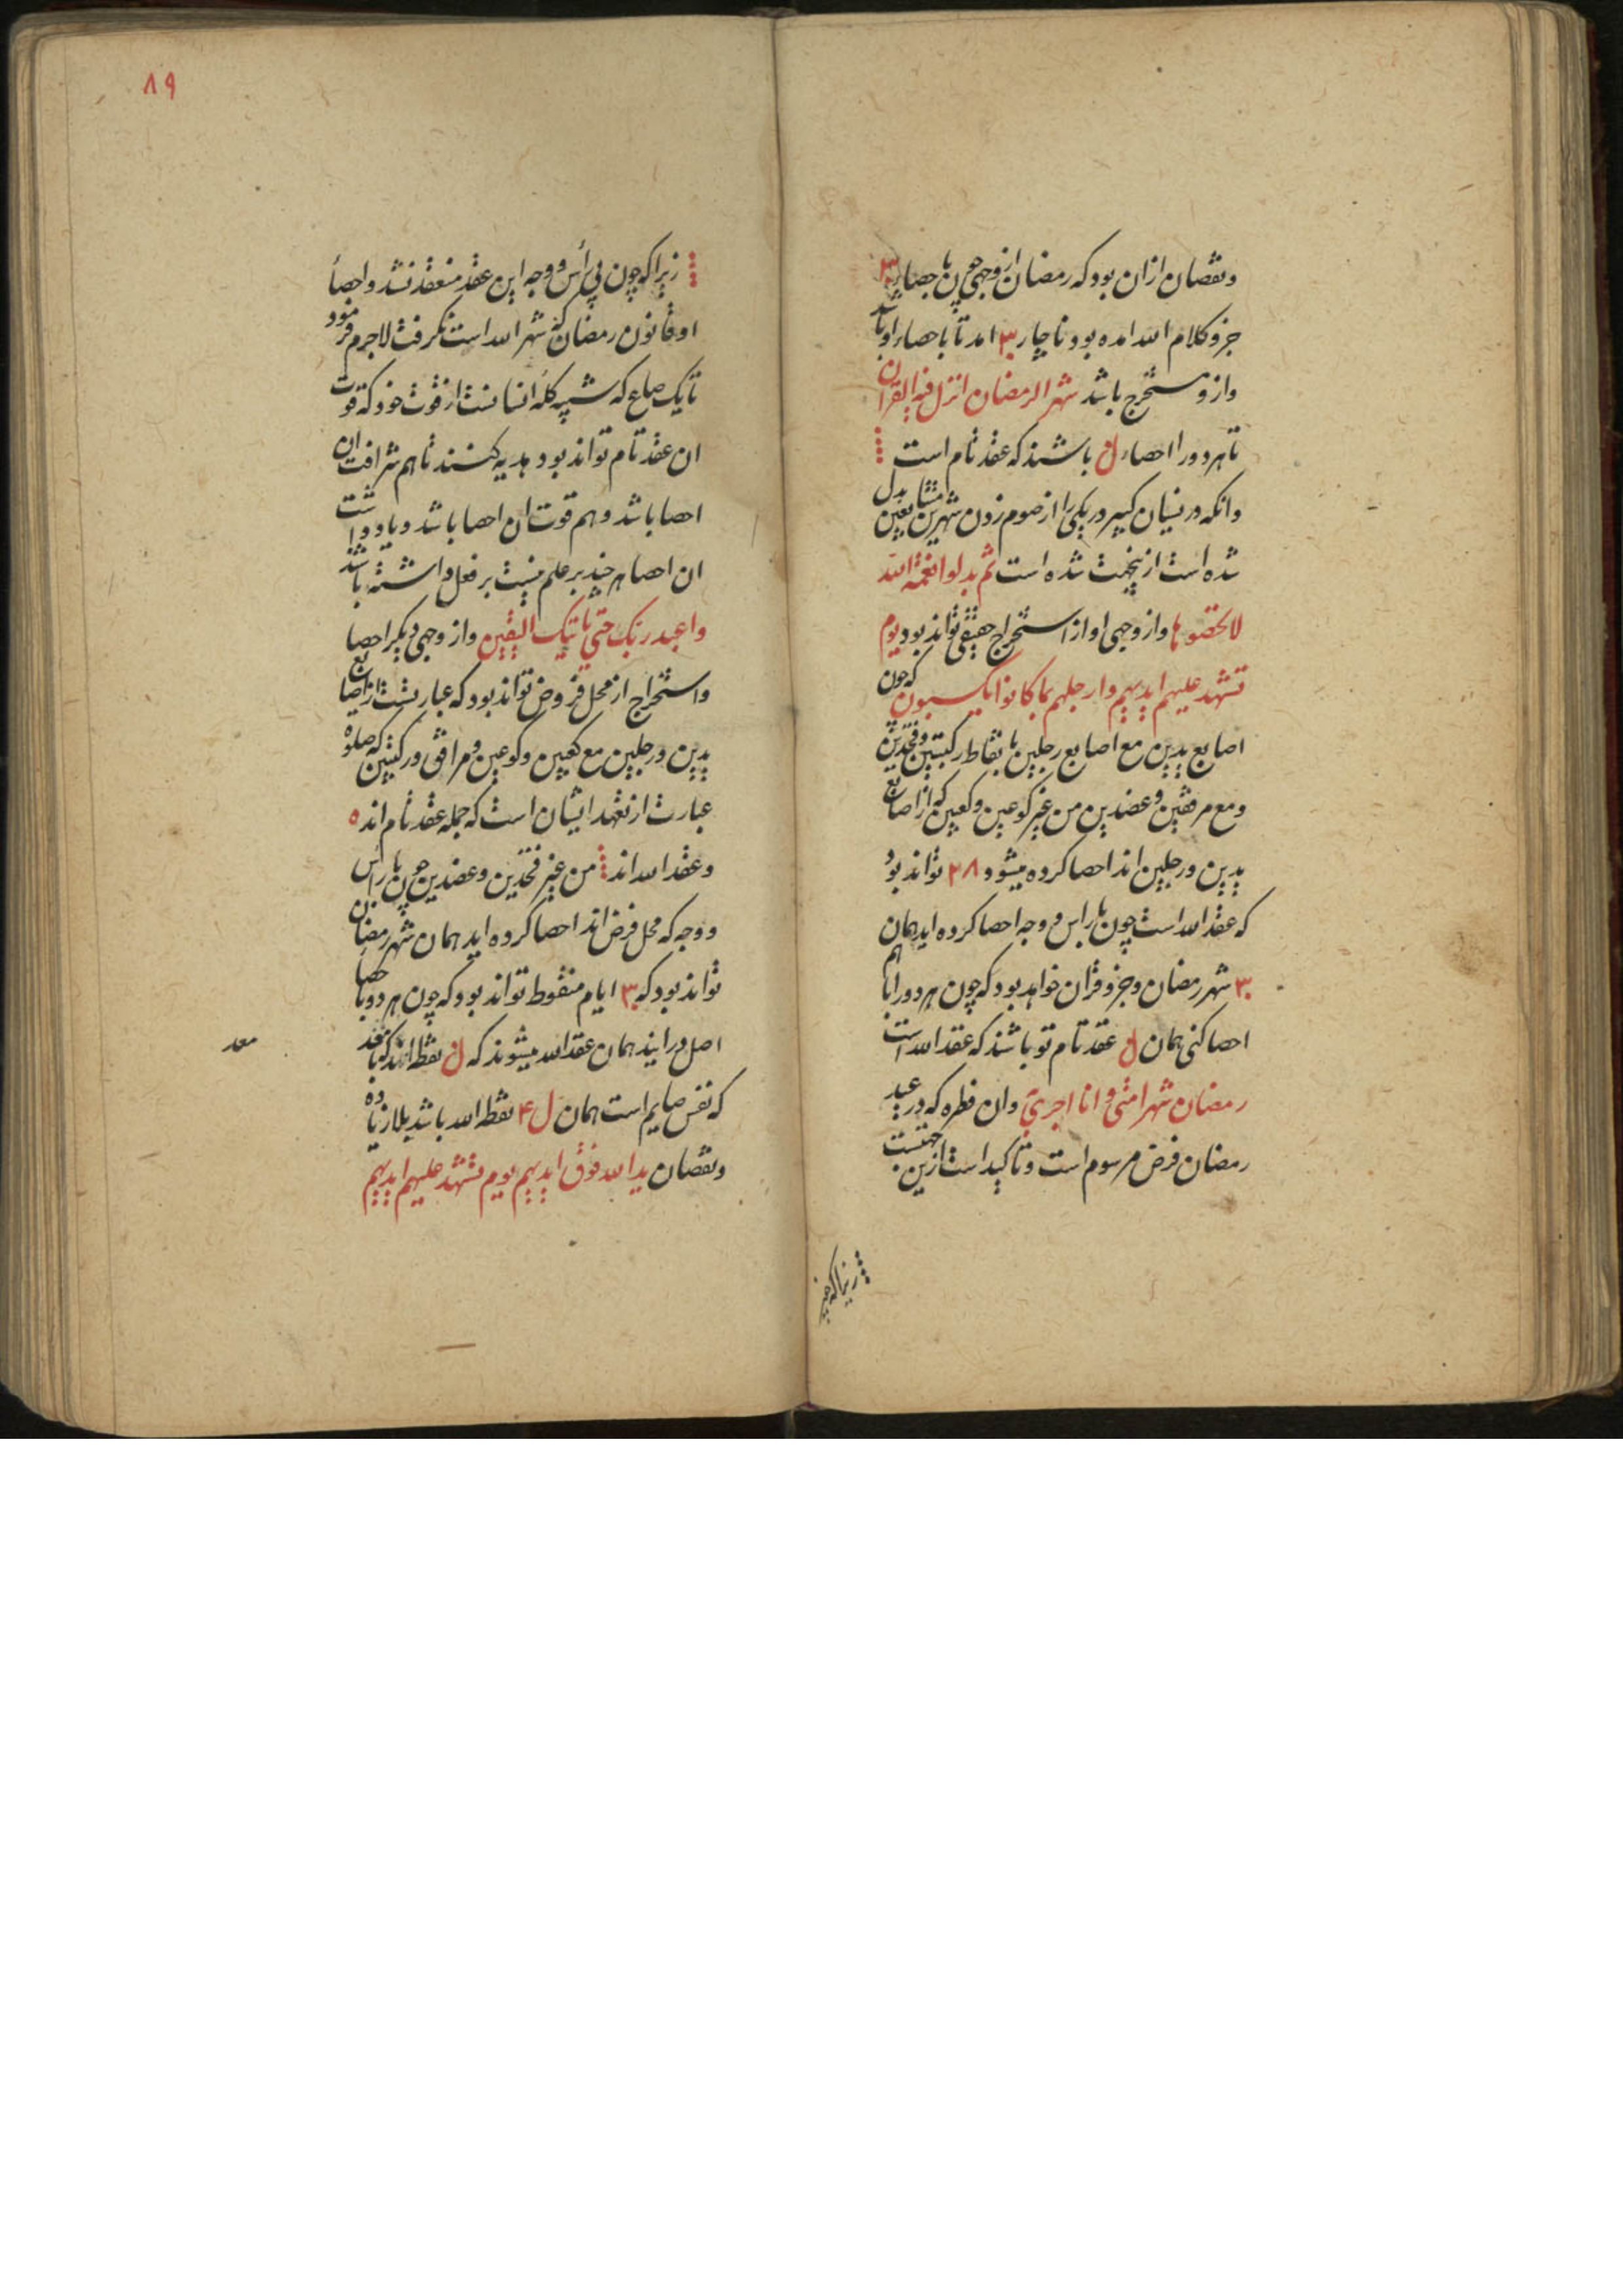 ونقصان ازان بود که رمضان از وجهی چون با حصار ۳۰
جزو کلام الله امده بود ناچار ۳۰ امد تا با حصاء او باشد
وازو مستخرج باشد شهر الرمضان انزل فیه القران
تا هر دو را احصاء ل باشند که عقد تام است
وانکه در نسیان کبیر در یکی را از صوم زدن شهرین متتابعین بدل
شده است ازینجهت شده است ثم بدلوا نعمة الله
لا تحصوها واز وجهی او از استخراج حقیقی تواند بود یوم
تشهد علیهم ایدیهم وارجلهم بما کانوا یکسبون که چون
اصابع یدین مع اصابع رجلین با نقاط رکبتین وفخذین
ومع مرفقین وعضدین من غیر کوعین وکعبین که از اصابع
یدین ورجلین اند احصا کرده میشود ۲۸ تواند بود
که عقد الله است چون با راس و وجه احصا کرده اید همان
۳۰ شهر رمضان وجزو قران خواهد بود که چون هر دو را با هم
احصا کنی همان ل عقد تام تو باشند که عقد الله است
رمضان شهر امتی و انا اجری وان فطره که در عید
رمضان فرض مرسوم است وتاکید است ازین جهتست
زیرا که چون
۸۹
زیرا که چون بی رأس و وجه این عقد منعقد نشد واحصاء
او قانون رمضان که شهر الله است نگرفت لاجرم فرمود
تا یک صاع که شبیه کله انسانست از قوت خود که قوت
ان عقد تام تواند بود هدیه کنند تا هم شرافت ان
احصا باشد وهم قوت ان احصا باشد ویاد داشت
ان احصا هر چند بر علم نیست بر فعل داشته باشد
واعبد ربک حتی یاتیک الیقین واز وجهی دیگر احصا
واستخراج از محل فروض تواند بود که عبارتست از اصابع
یدین ورجلین مع کعبین وکوعین ومرافق ورکبتین که صلوة
عبارت از تعهد ایشان است که جمله عقد تام اند ه
وعقد الله اند من غیر فخذین وعضدین چون با راس
ووجه که محل فرض اند احصا کرده اید همان شهر رمضان
تواند بود که ۳۰ ایام منقوط تواند بود که چون هر دو با حصا
اصل درایند همان عقد الله میشوند که ل نقطه اند که با عقد
معد
که نفس صایم است همان ل ۴ نقطه الله باشد بلا زیاده
ونقصان ید الله فوق ایدیهم یوم تشهد علیهم ایدیهم